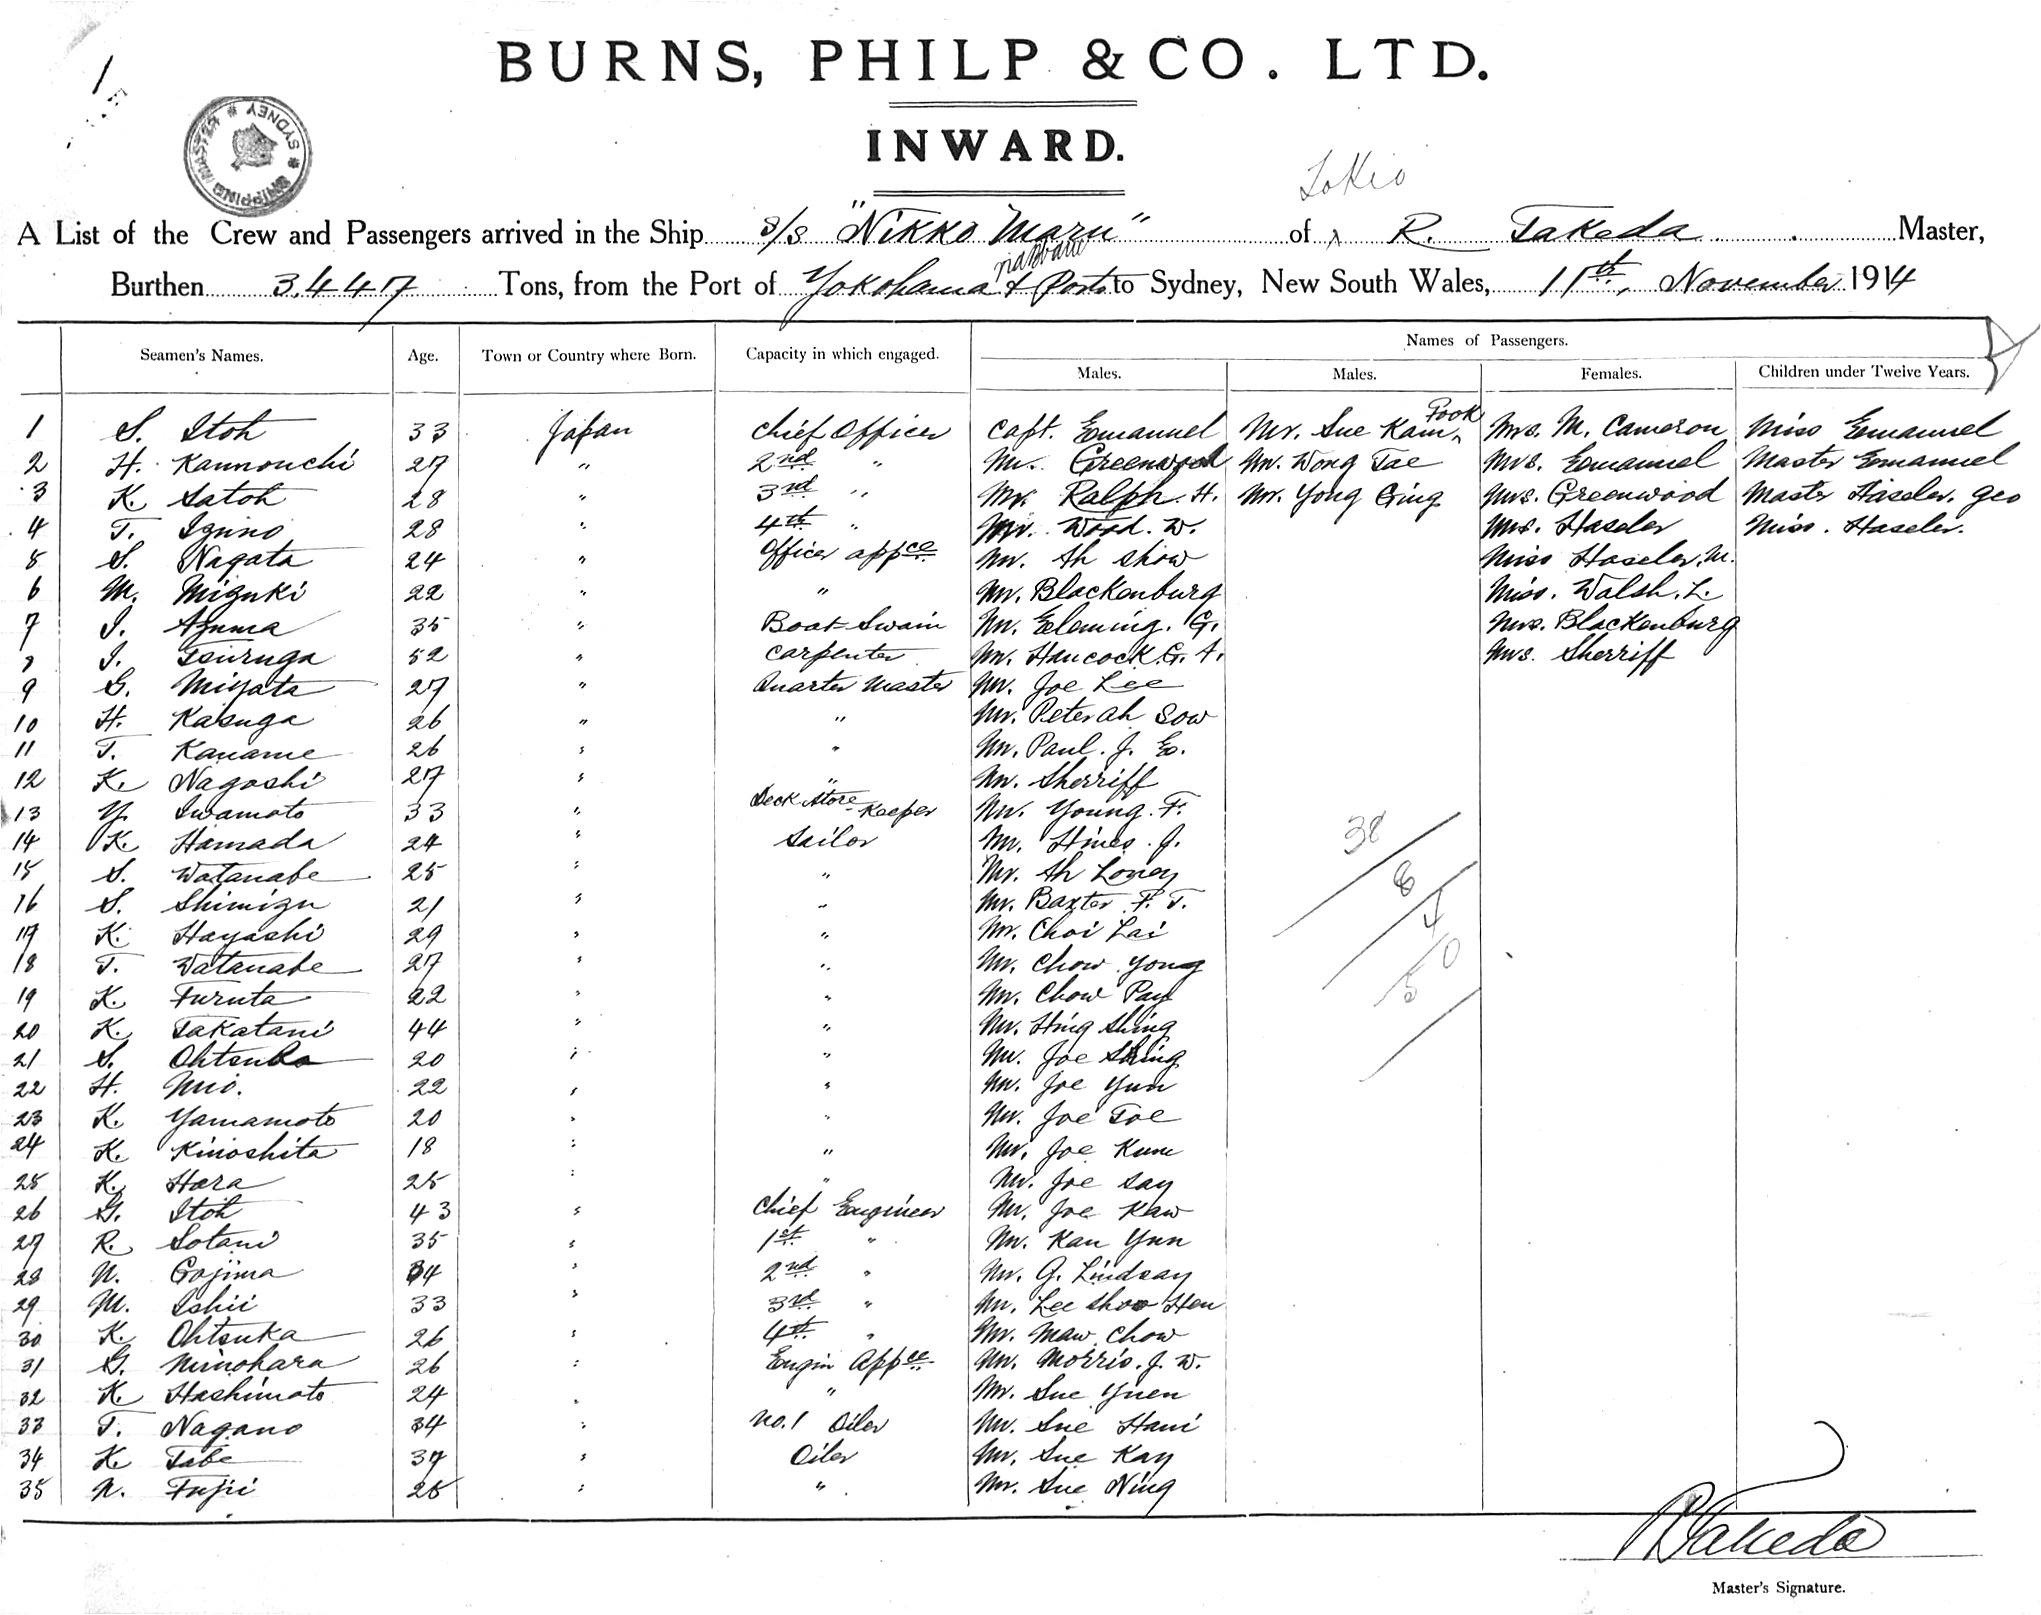 BURNS, PHILP & CO. LTD.
INWARD.
SHIPPING MASTER SYDNEY
Tokio
A List of the Crew and Passengers arrived in the Ship S/S "Nikko Maru" of R. Takeda Master,
Burthen 3,447 Tons, from the Port of Yokohama & Ports to Sydney, New South Wales, 11th, November 1914
Seamen's Names. Age. Town or Country where Born. Capacity in which engaged. Names of Passengers.
Males. Males. Females. Children under Twelve Years.
1 S. Itoh 33 Japan Chief Officer Capt. Emanuel Mr. Sue Kam Fook Mrs. M. Cameron Miss Emanuel
2 H. Kannouchi 27 " 2nd " Mr. Greenwood Mr. Wong Tae Mrs. Emanuel Master Emanuel
3 K. Satoh 28 " 3rd " Mr. Ralph. H. Mr. Yong Ging Mrs. Greenwood Master Haseler. Geo
4 T. Izuno 28 " 4th " Mr. Wood. W. Mrs. Haseler Miss. Haseler.
5 S. Nagata 24 " Officer appce Mr. Ah Show Miss Haseler. M.
6 M. Mizuki 22 " " Mr. Blackenburg Miss. Walsh. L.
7 I. Azuma 35 " Boat Swain Mr. Fleming. G. Mrs. Blackenburg
8 I. Tsuruga 52 " Carpenter Mr. Hancock. G. A. Mrs. Sherriff
9 G. Miyata 27 " Quarter Master Mr. Joe Lee
10 H. Kasuga 26 " " Mr. Peter Ah Sow
11 T. Kaname 26 " " Mr. Paul. J. E.
12 K. Nagoshi 27 " " Mr. Sherriff
13 Y. Iwamoto 33 " Deck Store Keeper Mr. Young. F.
14 K. Hamada 24 " Sailor Mr. Hines. J.
15 S. Watanabe 25 " " Mr. Ah Loney
16 S. Shimizu 21 " " Mr. Baxter F. T.
17 K. Hayashi 29 " " Mr. Choi Lai
18 T. Watanabe 27 " " Mr. Chow Yong
19 K. Furuta 22 " " Mr. Chow Pay
20 K. Takatani 44 " " Mr. Hing Shing
21 S. Ohtsubo 20 " " Mr. Joe Shing
22 H. Mio. 22 " " Mr. Joe Yun
23 K. Yamamoto 20 " " Mr. Joe Toe
24 K. Kinoshita 18 " " Mr. Joe Kum
25 K. Hara 25 " " Mr. Joe Say
26 G. Itoh 43 " Chief Engineer Mr. Joe Kaw
27 R. Sotani 35 " 1st " Mr. Kan Yun
28 N. Gojima 34 " 2nd " Mr. G. Lindsay
29 M. Ishii 33 " 3rd " Mr. Lee Shoo Hen
30 K. Ohtsuka 26 " 4th " Mr. Maw Chow
31 G. Minohara 26 " Engin Appce Mr. Morris. J. W.
32 K. Hashimoto 24 " " Mr. Sue Yuen
33 T. Nagano 34 " No. 1 Oiler Mr. Sue Hani
34 K. Tabe 37 " Oiler Mr. Sue Kay
35 N. Fujii 25 " " Mr. Sue Ning
38
8
4
50
R Takeda
Master's Signature.